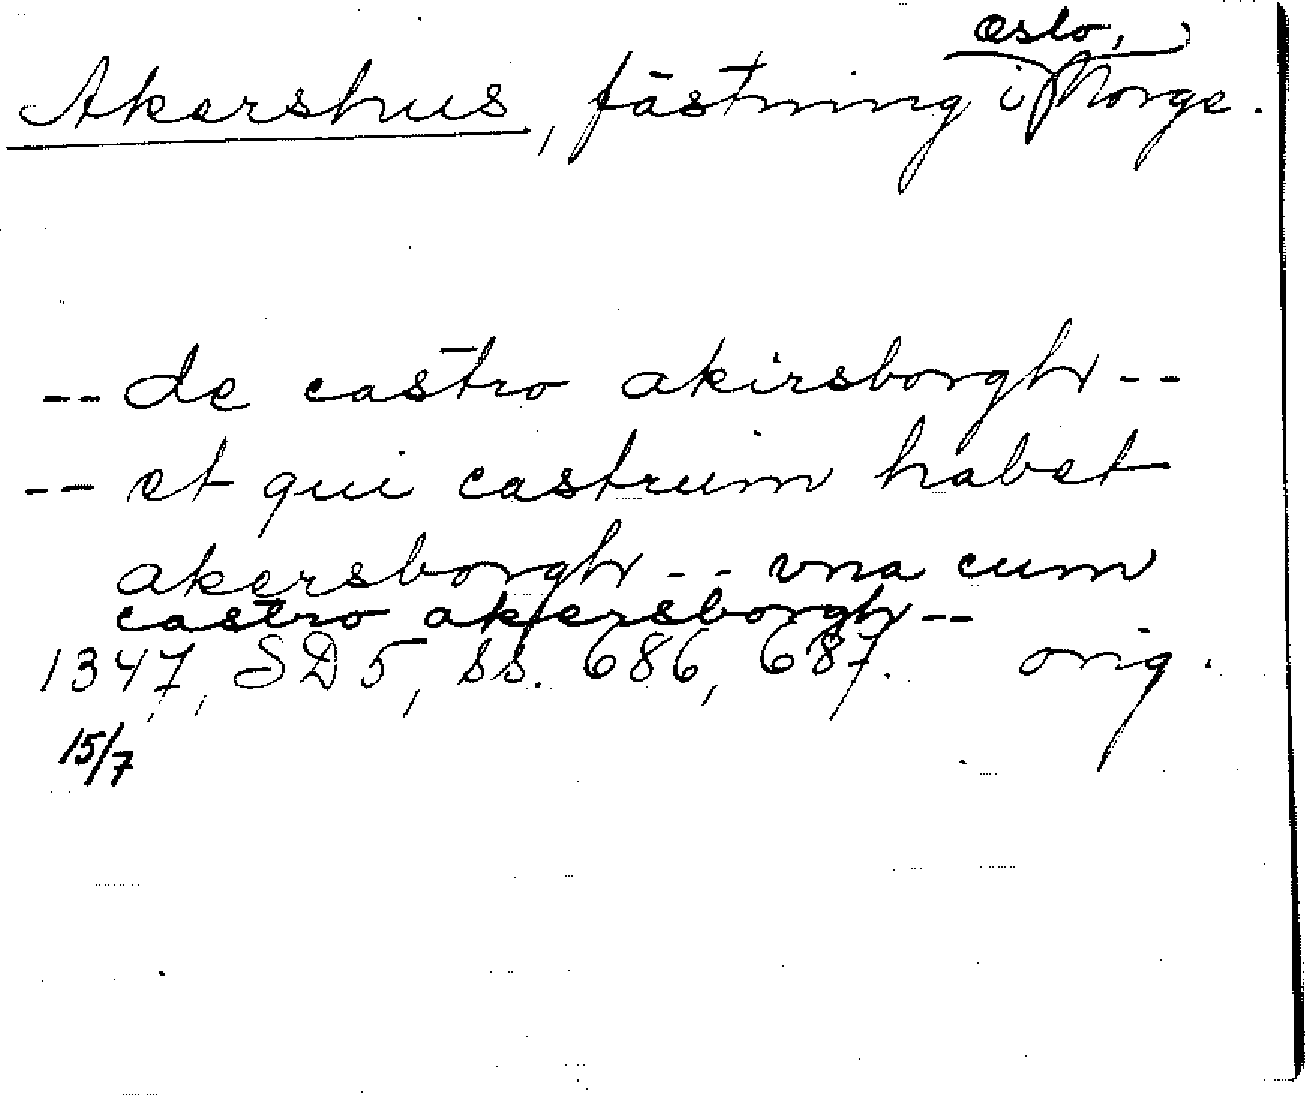 Oslo,
Akershus, fästning i Norge.
-- de castro akirsborgh --
-- et qui castrum habet
akersborgh -- vna cum
castro akersborgh --
1347, SD 5, ss. 686, 687. orig.
15/7